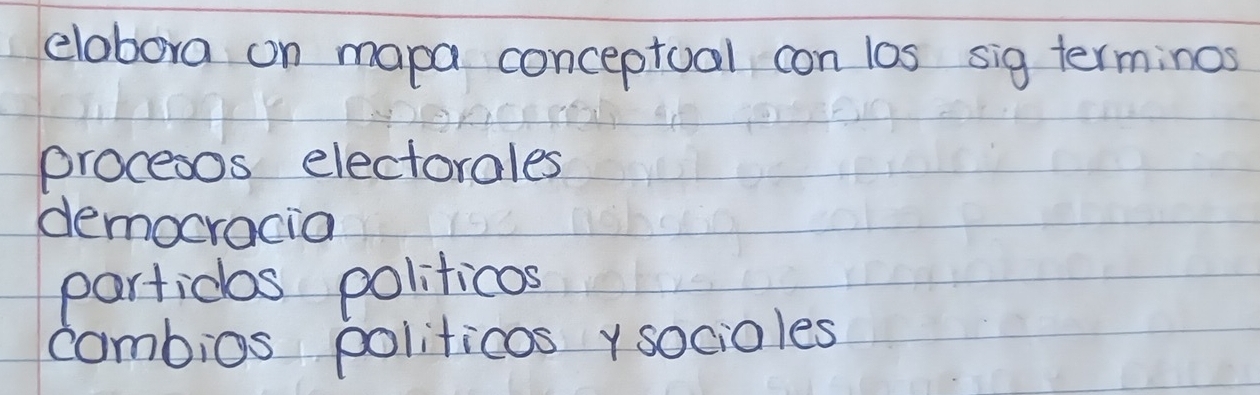 elabora un mapa conceptual con los sig terminos
procesos electorales
democracia
partidos politicos
cambios politicos y sociales